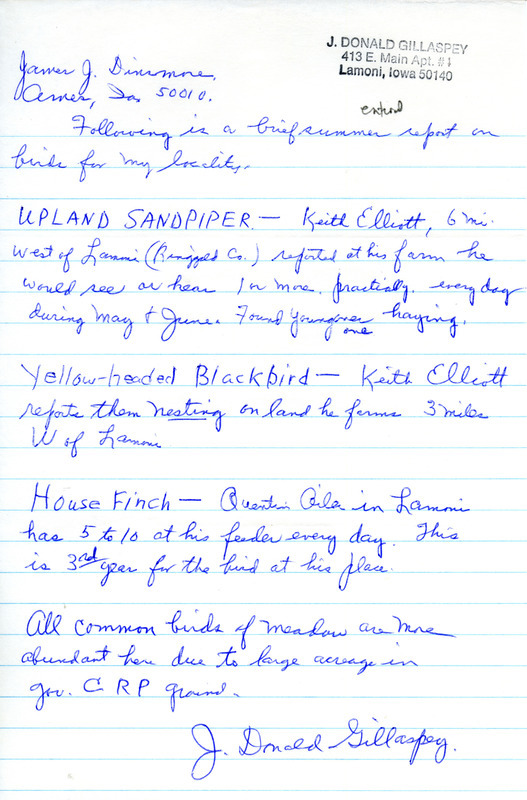 J. DONALD GILLASPEY
413 E. Main Apt. #1
Lamoni, Iowa 50140
James J. Dinsmore,
Ames, Ia 50010.
Following is a brief summer report on
birds for my locality.
UPLAND SANDPIPER. — Keith Elliott, 6 mi.
West of Lamoni (Ringgold Co.) reported at his farm he
would see or hear 1 or more, practically, every day
during May & June. Found young one haying.
Yellow-headed Blackbird — Keith Elliott
reports them nesting on land he farms 3 miles
W of Lamoni
House Finch — Quentin in Lamoni
has 5 to 10 at his feeder every day. This
is 3rd year for the bird at his place.
All common birds of meadow are more
abundant here due to large acreage in
gov. C R P ground.
J. Donald Gillaspey.